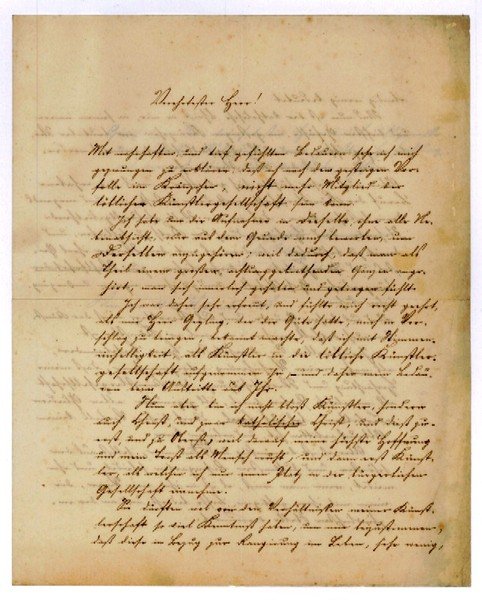 Verehrtester Herr!
Mit wahrhaftem, und tief gefühltem Bedauern sehe ich mich
gezwungen zu erklären, daß ich nach dem gestrigen Vor-
falle im nicht mehr Mitglied der
löblichen Künstlergesellschaft sein kann.
Ich habe um die Aufnahme in dieselbe, ohne alle Ne-
benabsicht, nur aus dem Grunde mich beworben, um
derselben anzugehören; weil dadurch, daß man als
Theil einem großen, achtunggebietenden Ganzen ange-
hört, man sich innerlich gehoben und getragen fühlt.
Ich war daher sehr erfreut, und fühlte mich recht geehrt,
als mir Herr der die Güte hatte, mich in Vor-
schlag zu bringen, bekannt machte, daß ich mit Stimmen-
einhelligkeit als Künstler in die löbliche Künstler-
gesellschaft aufgenommen sei, – und daher mein Bedau-
ern beim Austritte aus Ihr.
Nun aber bin ich nicht bloß Künstler, sondern
auch Christ, und zwar katholischer Christ, und dieß zu-
erst, und zu Oberst; weil darauf meine höchste Hoffnung
und mein Trost als Mensch ruht; und dann erst Künst-
ler, als welcher ich nur einen Platz in der bürgerlichen
Gesellschaft einnehme.
Sie dürften wol von den Verhältnissen meiner Künst-
lerschaft so viel Kenntniß haben, um mir beizustimmen,
daß diese in Bezug zur Rangirung im Leben, sehr wenig,